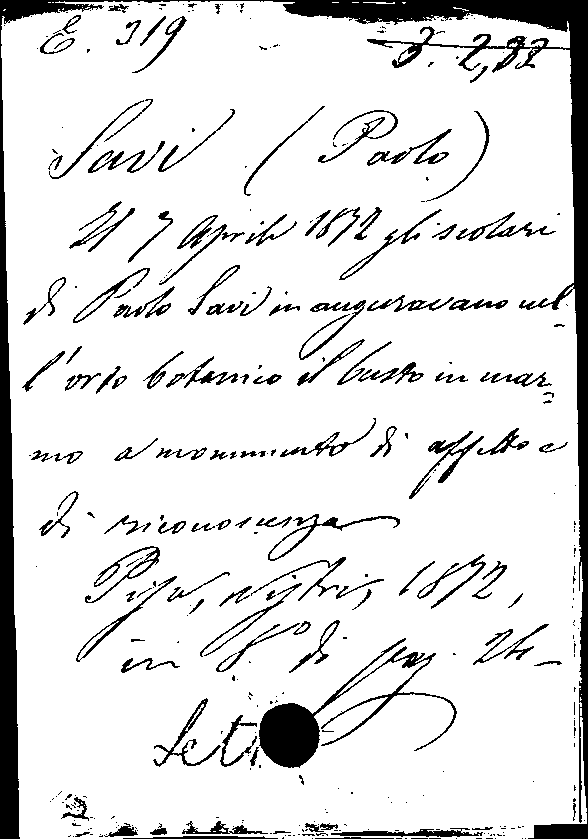 E. 319 F. 2,32
Savi (Paolo)
Il 7 Aprile 1872 gli scolari
di Paolo Savi inauguravano nel-
l'orto botanico il busto in mar=
mo a monumento di affetto e
di riconoscenza
Pisa, Nistri, 1872,
in 8° di pag. 24